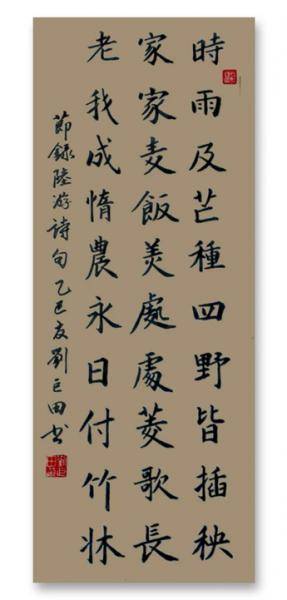 時雨及芒種四野皆插秧
家家麦飯美處處菱歌長
老我成惰農永日付竹牀
節録陸游詩句乙巳夏劉巨田书